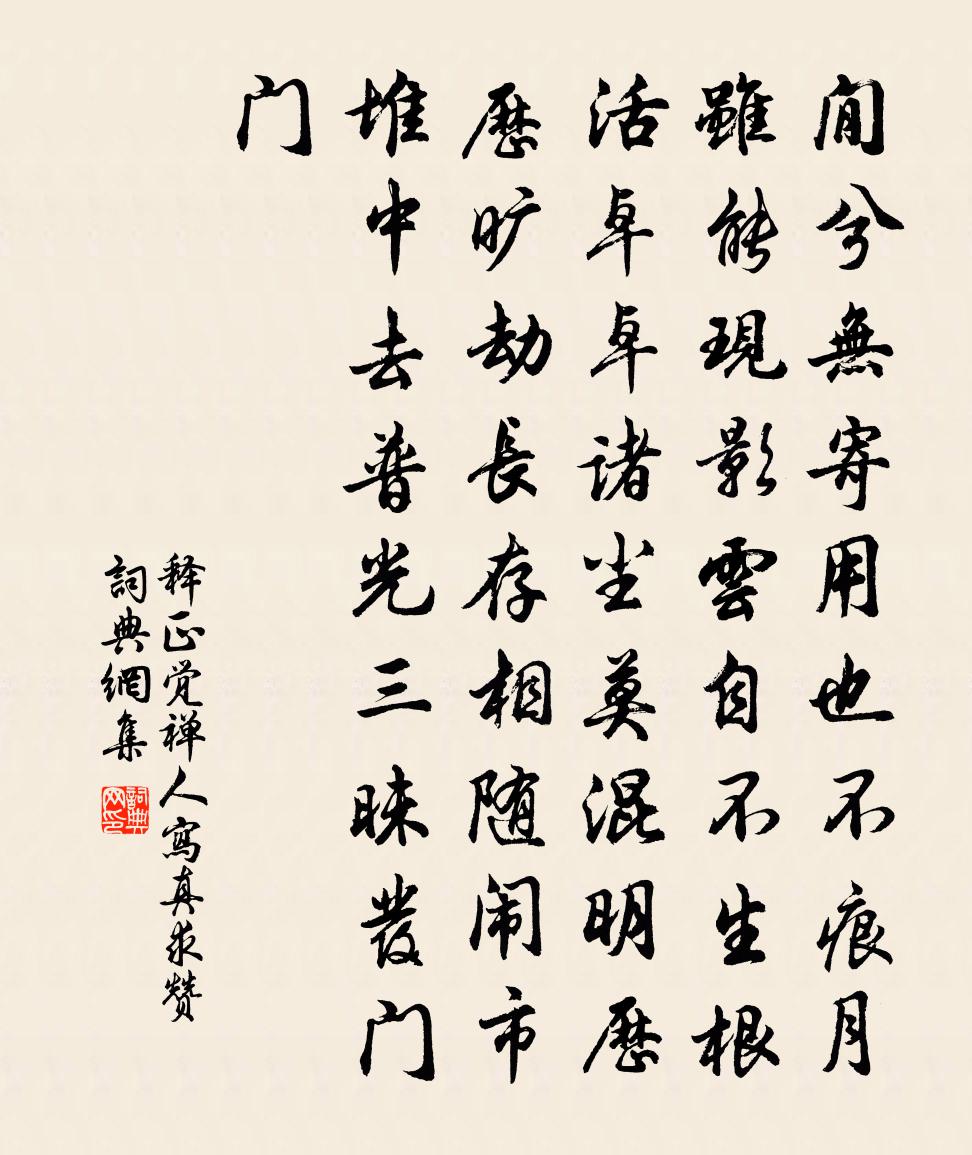 闲兮無寄用也不痕月
雖能現影雲自不生根
活卓卓諸尘莫混明歷
歷旷劫長存相随闹市
堆中去普光三昧發门
门
释正觉禅人寫真求赞
詞典網集
詞典网印